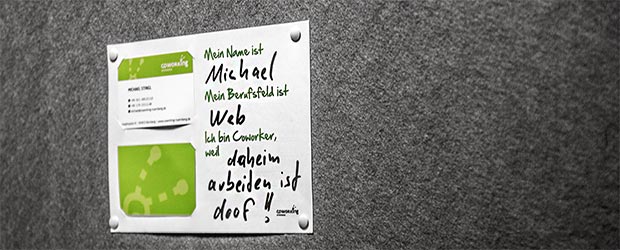 coworking
MICHAEL STINGL
Mein Name ist
Michael
Mein Berufsfeld ist
Web
Ich bin Coworker,
weil daheim
arbeiten ist
doof!!
coworking